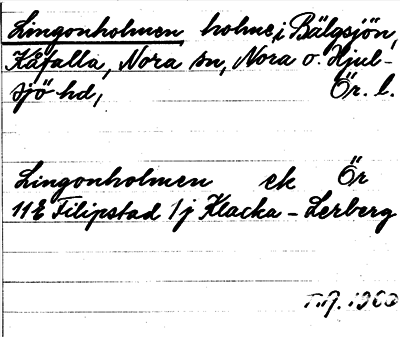 Lingonholmen holme i Bälgsjön,
Kåfalla, Nora sn, Nora o. Hjul-
sjö hd, Ör. l.
Lingonholmen ek Ör
11E Filipstad 1j Klacka - Lerberg
1960